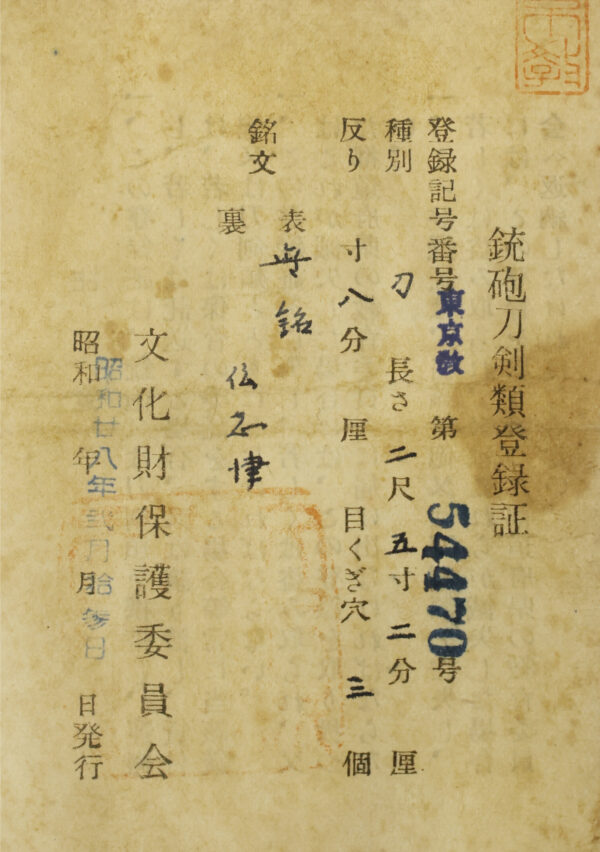 銃砲刀剣類登録証
登録記号番号 東京教 第 54470 号
種別 刀 長さ 二尺 五寸 二分 厘
反り 寸 八分 厘 目くぎ穴 三 個
銘文 表 無銘
裏 伝
文化財保護委員会
昭和 年 月 日発行
昭和廿八年弐月拾参日